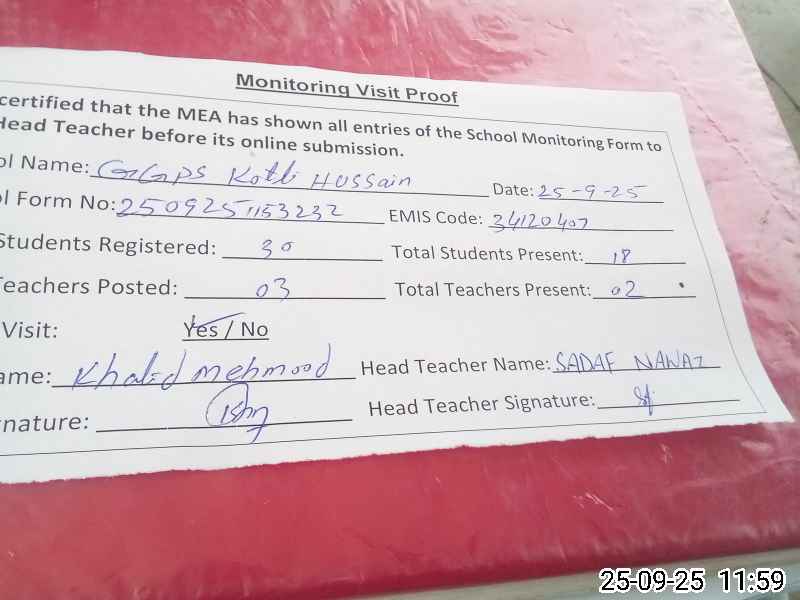 Monitoring Visit Proof
certified that the MEA has shown all entries of the School Monitoring Form to
Head Teacher before its online submission.
ol Name: GGPS Kotli Hussain Date: 25-9-25
l Form No: 250925 1153232 EMIS Code: 34120407
Students Registered: 30 Total Students Present: 18
Teachers Posted: 03 Total Teachers Present: 02
Visit: Yes / No
ame: Khalid mehmood Head Teacher Name: SADAF NAWAZ
nature: Head Teacher Signature:
25-09-25 11:59